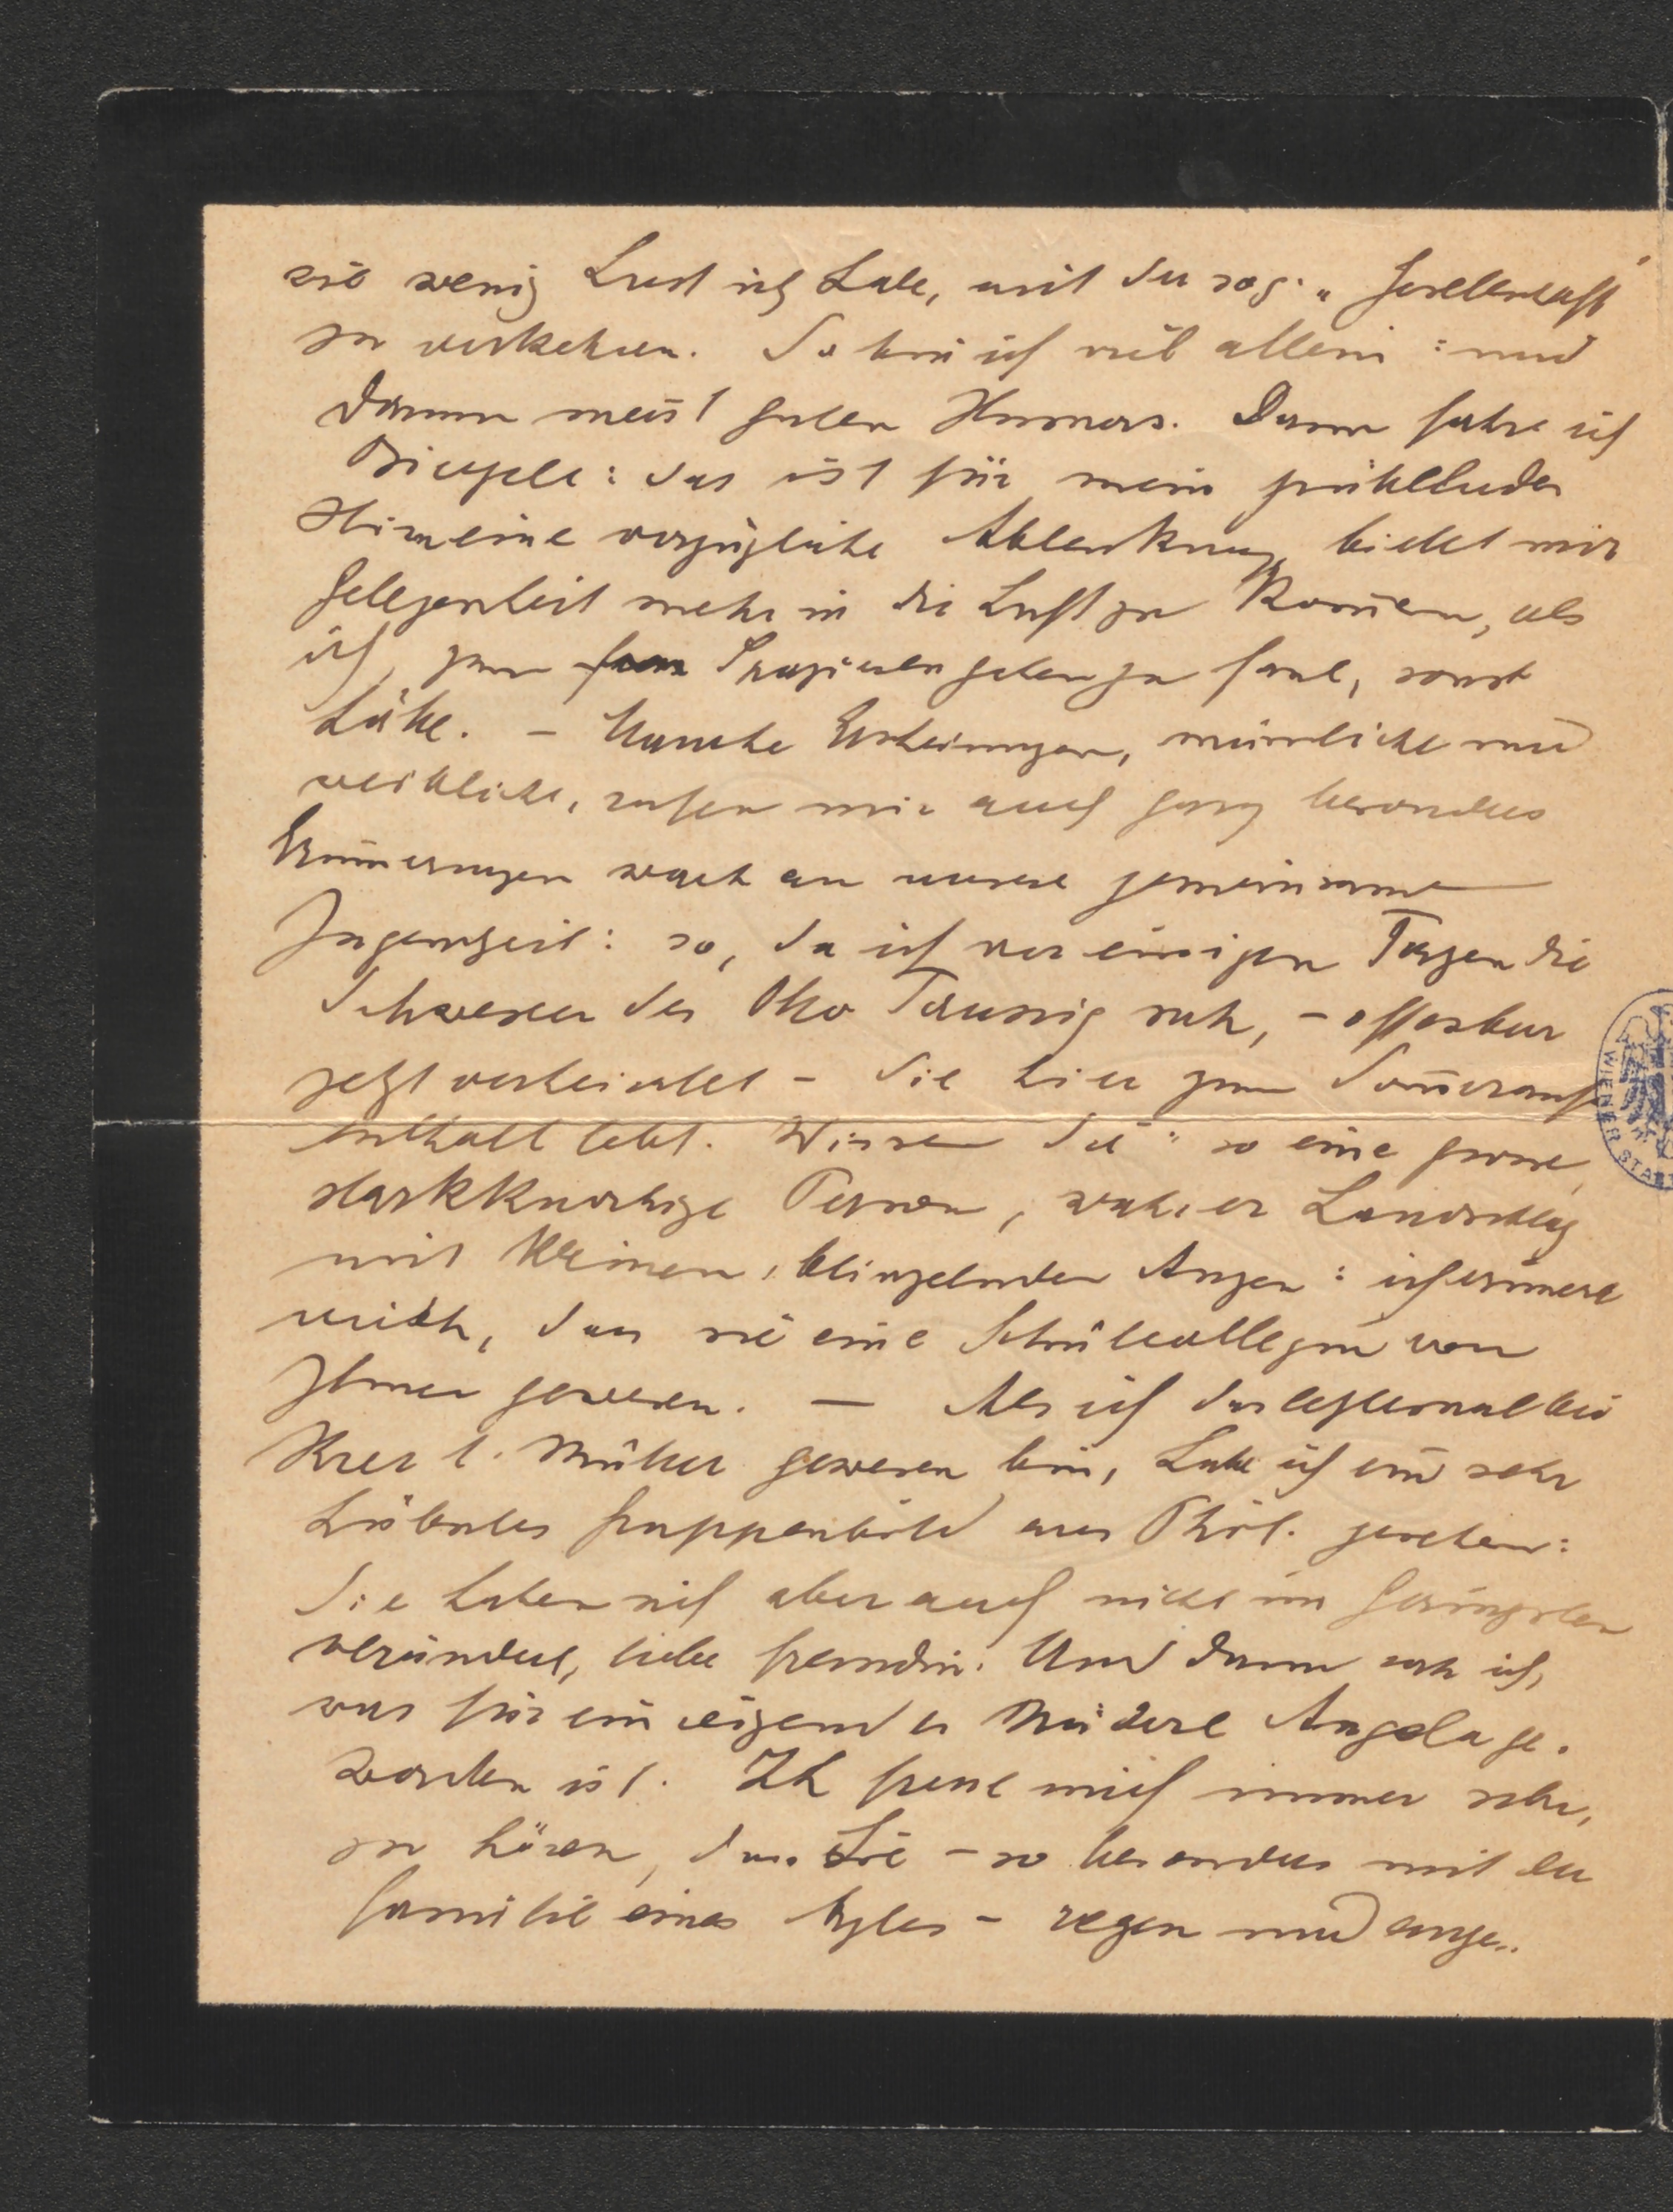 wie wenig Lust ich habe, mit der sog. „Gesellschaft"
zu verkehren. So bin ich viel allein: und
darum meist guten Humors. Dann fahre ich
Bicycle: das ist für mein grübelndes
Hirn eine vorzügliche Ablenkung, bietet mir
Gelegenheit mehr in die Luft zu kom̄en, als
ich, zum Spazierengehen zu faul, sonst
hätte. – Manche Erscheinungen, männliche und
weibliche, rufen mir auch ganz besonders
Erin̄erungen wach an unsere gemeinsame
Jugendzeit: so, da ich vor einigen Tagen die
Schwester des Otto Taussig sah, – offenbar
jetzt verheiratet – die hier zum Som̄erauf
enthalt lebt. Wissen Sie: so eine grosse,
starkknochige Person, wahrer Landschlag
mit kleinen, blinzelnden Augen: ich erin̄ere
mich, dass sie eine Schulcollegin von
Ihnen gewesen. – Als ich das letztemal bei
Ihrer l. Mutter gewesen bin, habe ich ein sehr
hübsches Gruppenbild aus Phil. gesehen:
Sie haben sich aber auch nicht im Geringsten
verändert, liebe Freundin. Und dann sah ich,
was für ein reizendes Mäderl Angela ge-
worden ist. Ich freue mich immer sehr,
zu hören, dass Sie – so besonders mit der
Familie eines – regen und ange-
WIENER STADT